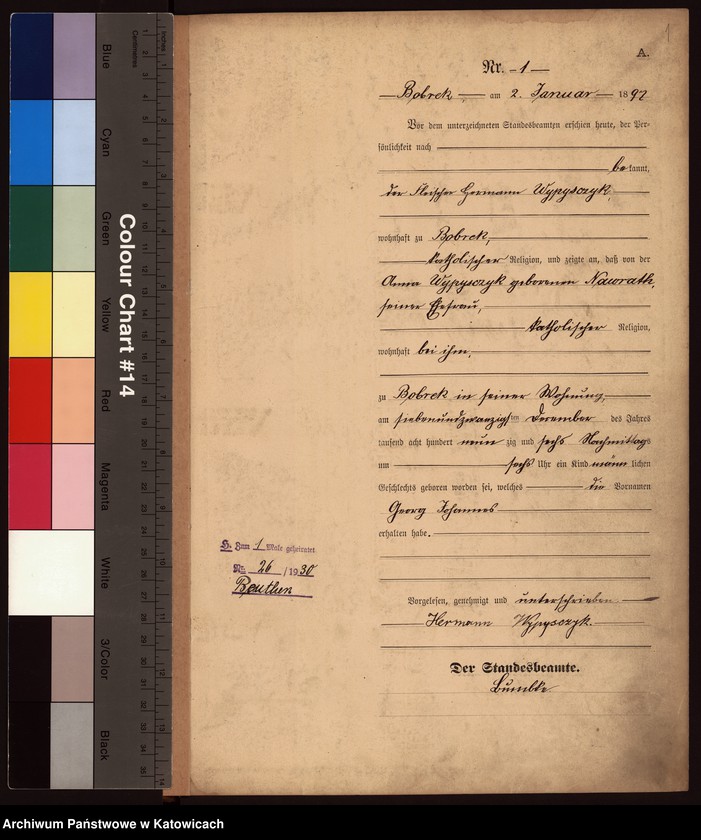 Blue
Cyan
Green
Yellow
Red
Magenta
White
3/Color
Black
Colour Chart #14
Centimetres
Inches
1
A.
Nr. 1
Bobrek, am 2. Januar 1897
Vor dem unterzeichneten Standesbeamten erschien heute, der Per-
sönlichkeit nach
bekannt,
der Fleischer Hermann Wypysczyk,
wohnhaft zu Bobrek,
katholischer Religion, und zeigte an, daß von der
Anna Wypysczyk geborenen Nawrath,
seiner Ehefrau,
katholischer Religion,
wohnhaft bei ihm,
zu Bobrek in seiner Wohnung,
am siebenundzwanzigsten December des Jahres
tausend acht hundert neunzig und sechs Nachmittags
um sechs Uhr ein Kind männlichen
Geschlechts geboren worden sei, welches die Vornamen
Georg Johannes
erhalten habe.
H. Zum 1 Male geheiratet
Nr. 26/1930
Beuthen
Vorgelesen, genehmigt und unterschrieben
Hermann Wypysczyk.
Der Standesbeamte.
Archiwum Państwowe w Katowicach